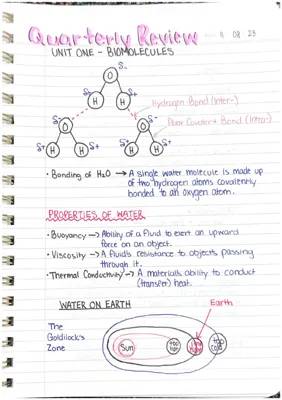 Quarterly Review 11 08 23
UNIT ONE - BIOMOLECULES
δ-
O
H H
δ+ δ+
Hydrogen Bond (Inter-)
Polar Covalent Bond (Intra-)
δ- δ-
O O
δ+ H H δ+ δ+ H H δ+
• Bonding of H2O → A single water molecule is made up
of two hydrogen atoms covalently
bonded to an oxygen atom.
PROPERTIES OF WATER
• Buoyancy → Ability of a fluid to exert an upward
force on an object.
• Viscosity → A fluid's resistance to objects passing
through it.
• Thermal Conductivity → A material's ability to conduct
(transfer) heat.
WATER ON EARTH
Earth
The
Goldilock's
Zone
Sun
too
hot
too
cold